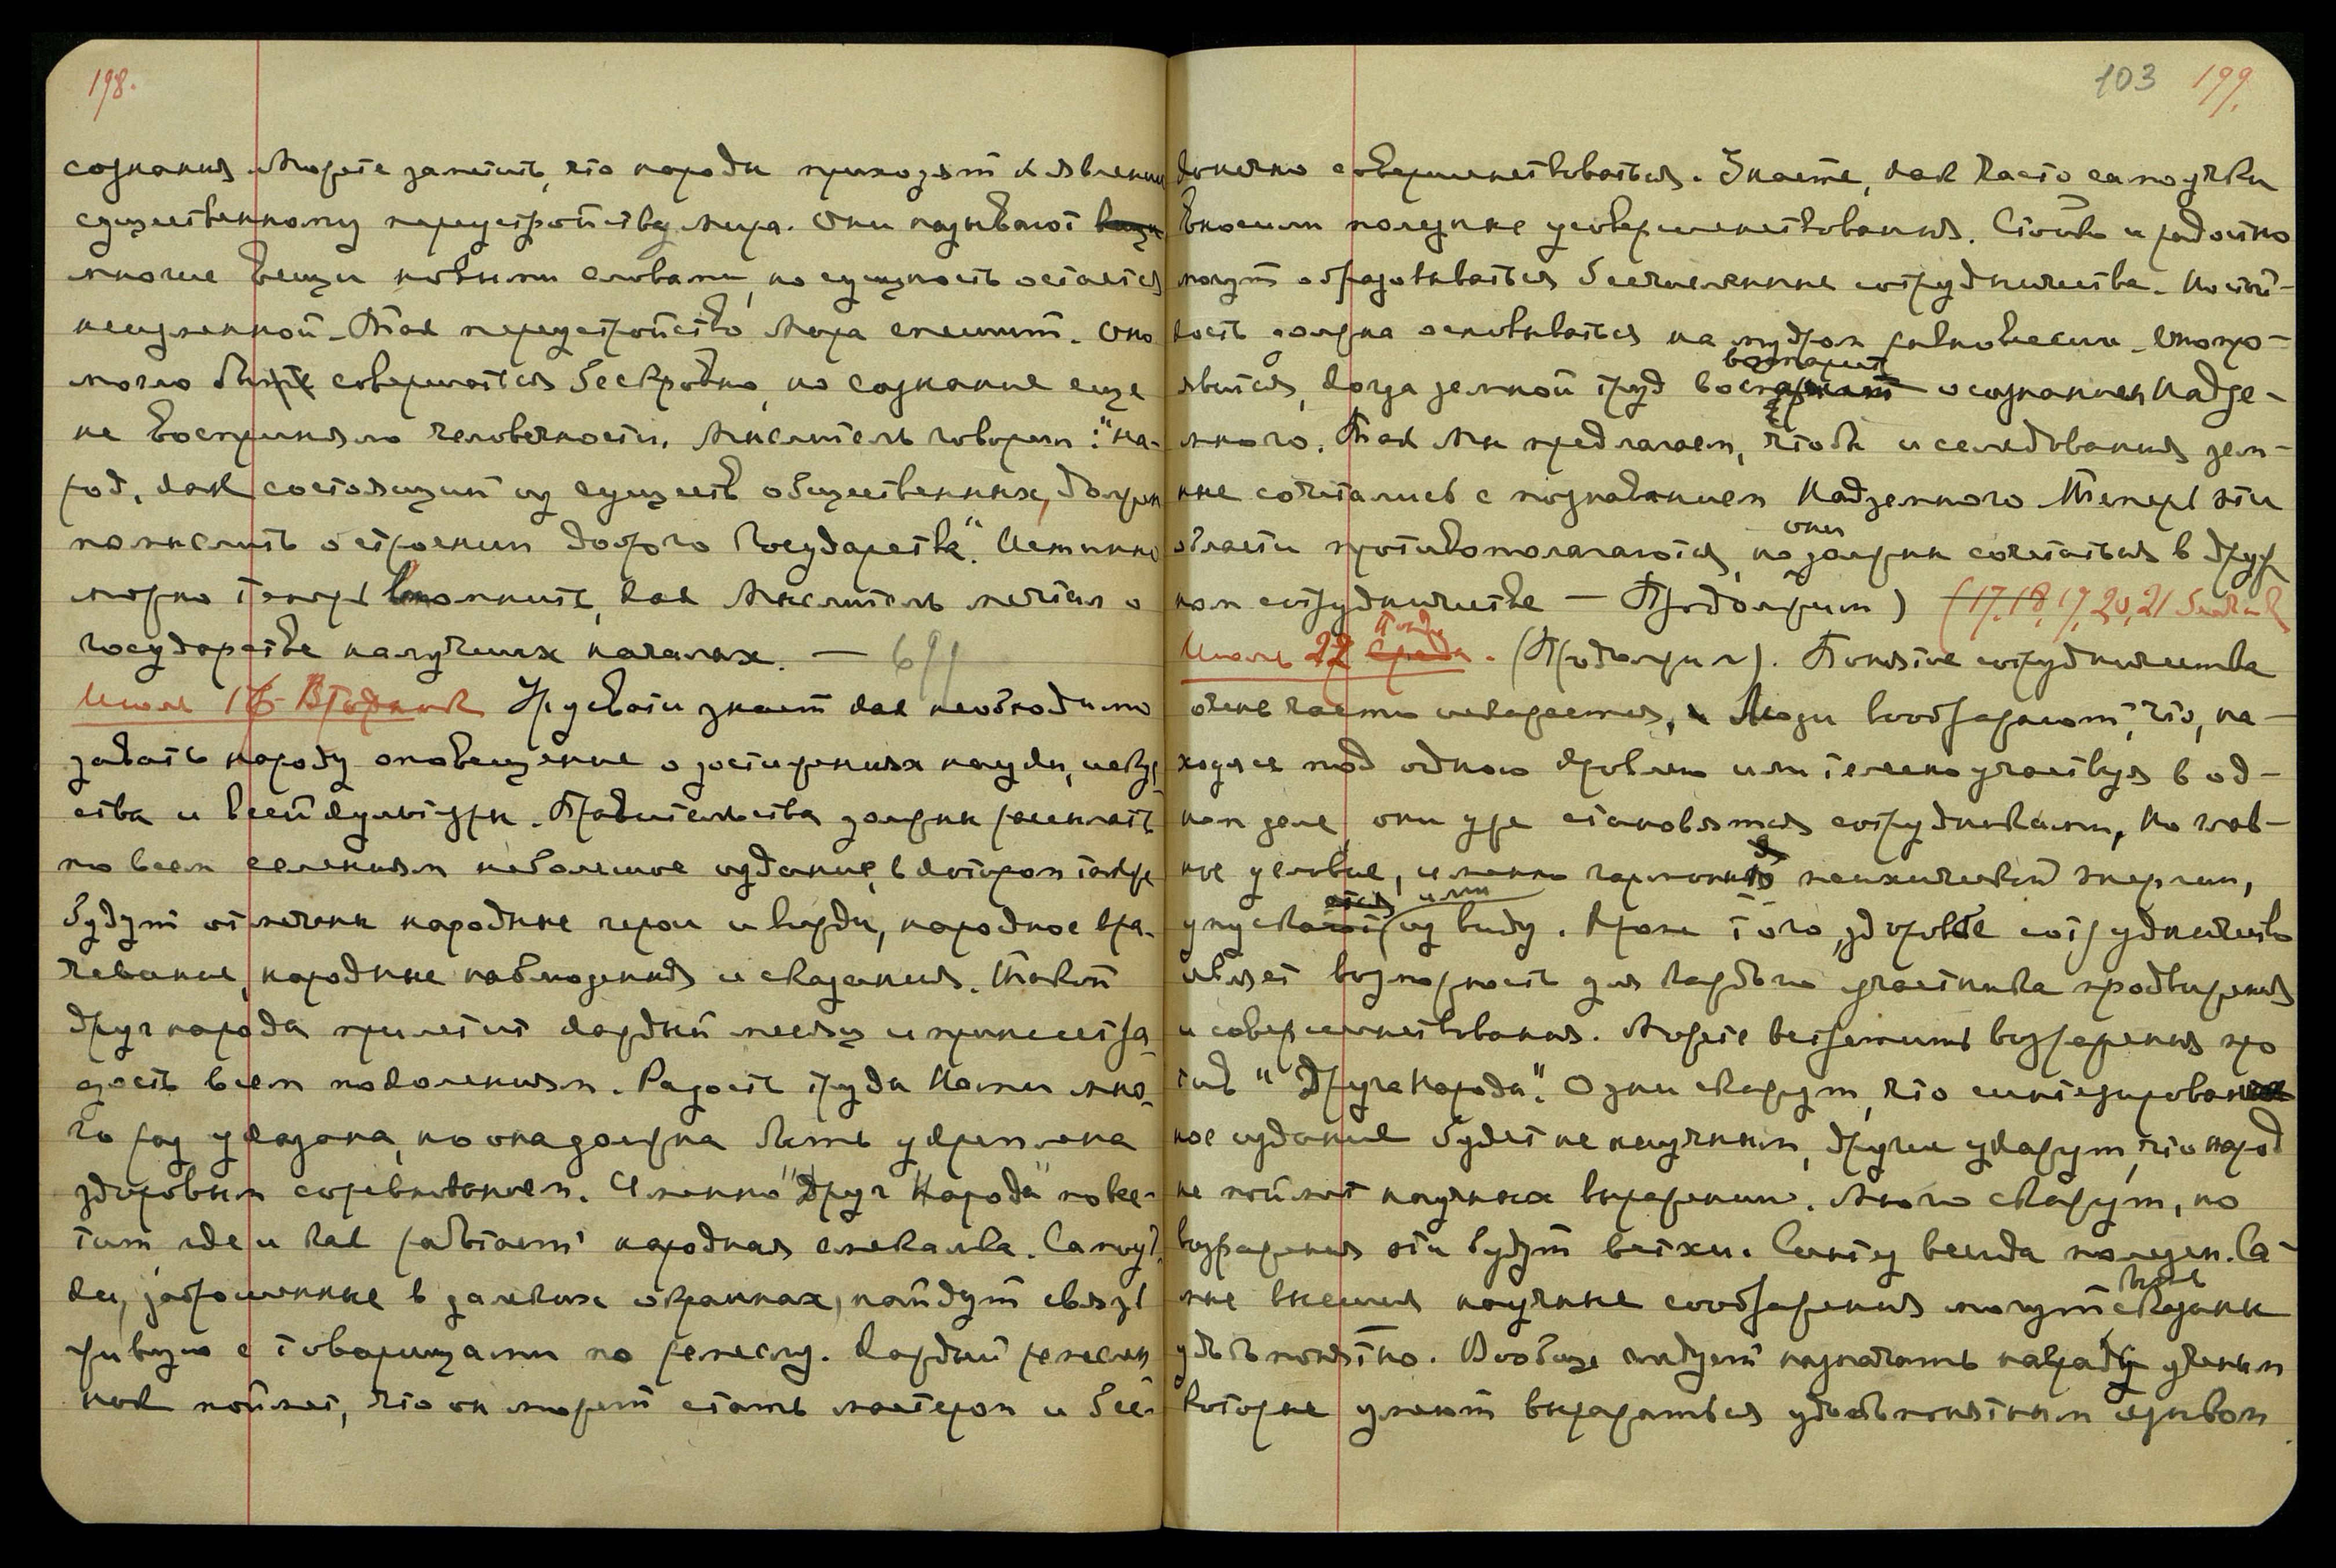 198.
сознания. Можете заметить, что народы приходят к явлению
существенному переустройству мира. Они называют
многие вещи новыми словами, но сущность остается
неизменной. Так переустройство Мира спешит. Оно
могло бы совершаться бескровно, но сознание еще
не восприняло человечности. Мыслитель говорил: "На-
род, как состоящий из существ общественных, должен
помыслить о строении доброго Государства". Истинно
можно теперь вспомнить, как Мыслитель мечтал о
государстве на лучших началах. — 691
Июль 16 Вторник Урусвати знает как необходимо
давать народу оповещение о достижениях науки, искус-
ства и всей культуры. Правительства должны рассылать
по всем селениям небольшое издание, в котором также
будут отмечены народные герои и вожди, народное вра-
чевание, народные наблюдения и сказания. Такой
друг народа прилетит каждый месяц и принесет ра-
дость всем поколениям. Радость труда Нами мно-
го раз указана, но она должна быть укреплена
здоровым соревнованием. Именно "Друг Народа" пове-
тит, где и как работает народная смекалка. Самоуч-
ки, заброшенные в далеких окраинах, найдут связь
живую с товарищами по ремеслу. Каждый ремеслен
ник поймет, что он может стать мастером и бес-
103 199.
конечно совершенствоваться. Знаете, как часто самоучки
вносили полезные усовершенствования. Стойко и радостно
могут образовываться бесчисленные сотрудничества. Но стой-
кость должна основываться на мудром равновесии. Оно про-
явится, когда земной труд возмощит осознанием Надзе-
много. Так Мы предлагаем, чтобы исследования зем-
ные сочетались с познаванием Надземного. Теперь эти
области противополагаются, но они должны сочетаться в друж
ном сотрудничестве — Продолжим) (17, 18, 19, 20, 21
Июль 22 Понед Среда. (Продолжил). Понятие сотрудничества
очень часто искажается, Люди воображают, что, на-
ходясь под одною кровлею или телесно участвуя в од-
ном деле, они уже становятся сотрудниками, Но глав-
ное условие, именно гармония психической энергии,
упускается ими из виду. Кроме того, здоровое сотрудничество
являет возможность для каждого участника продвижения
и совершенствования. Можете встретить возражения про
тив "Друга Народа". Одни скажут, что синтезирован
ное издание будет не научным, другие укажут, что народ
не поймет научных выражений. Много скажут, но
возражения эти будут ветхи. Синтез всегда полезен. Са-
мые высшие научные соображения могут быть сказаны
удобопонятно. Вообще следует назначать награды ученым
которые умеют выражаться удобопонятным языком